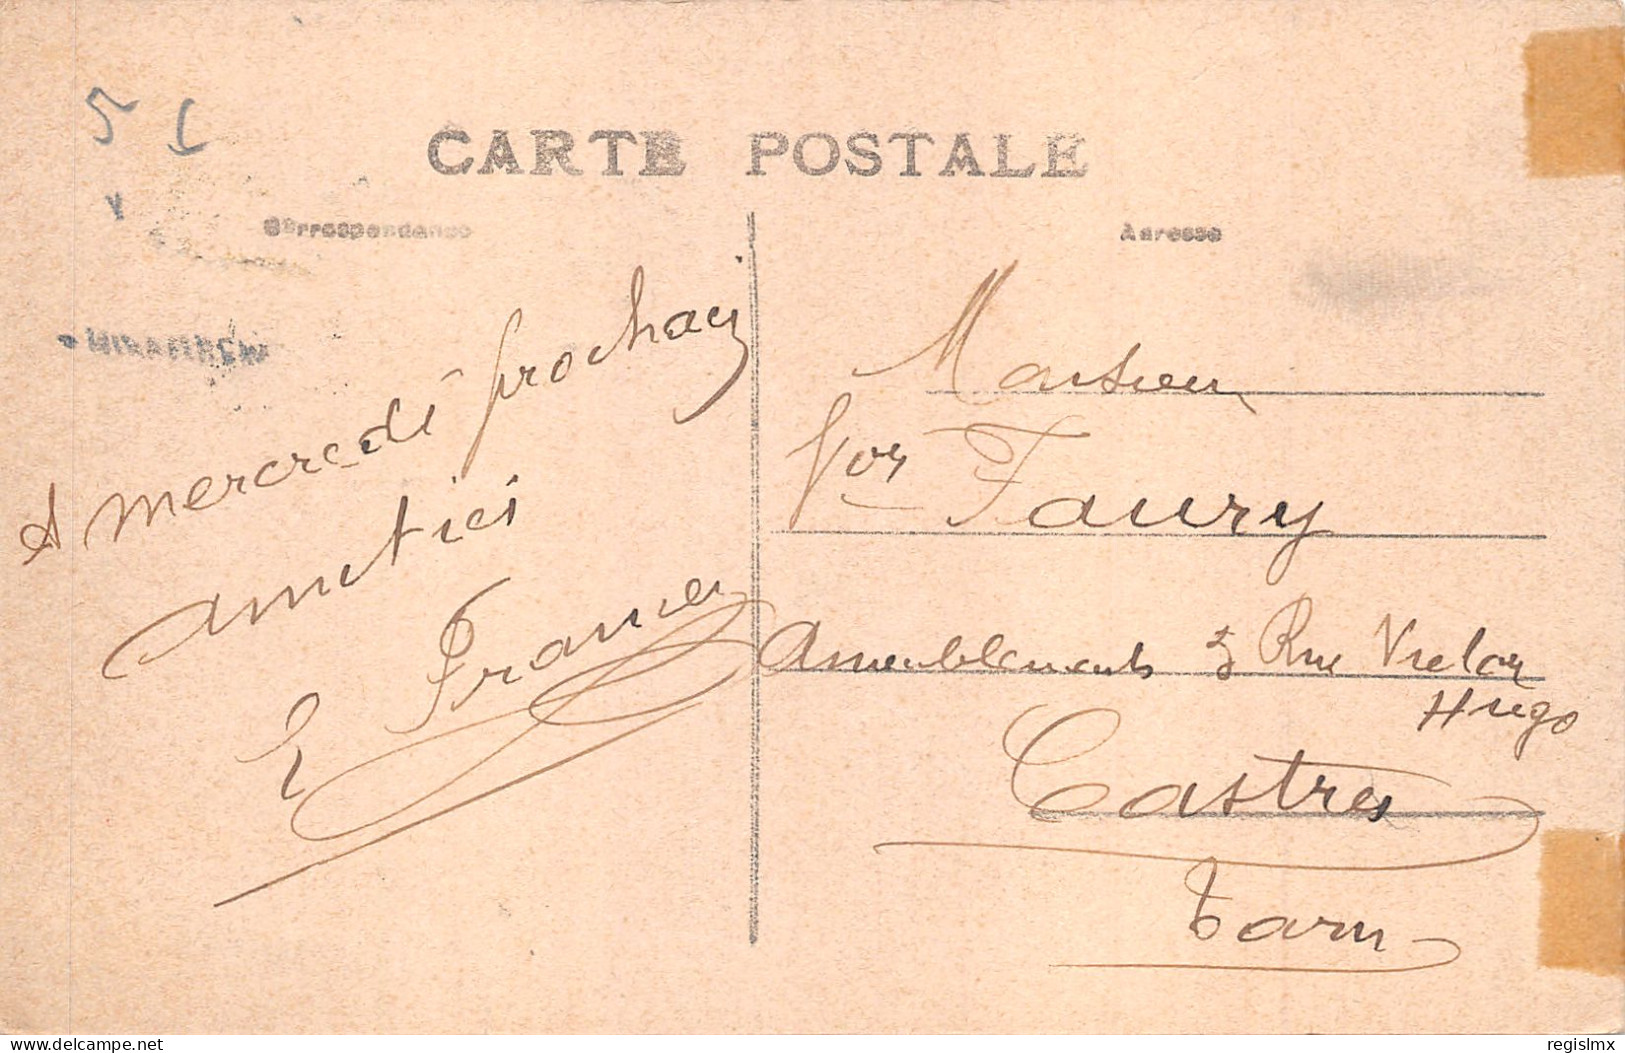 CARTE POSTALE
Correspondance
Adresse
A mercredi prochain
amitiés
Monsieur
Faury
Ameublements 5 Rue Victor
Hugo
Castres
Tarn
delcampe.net
regislmx